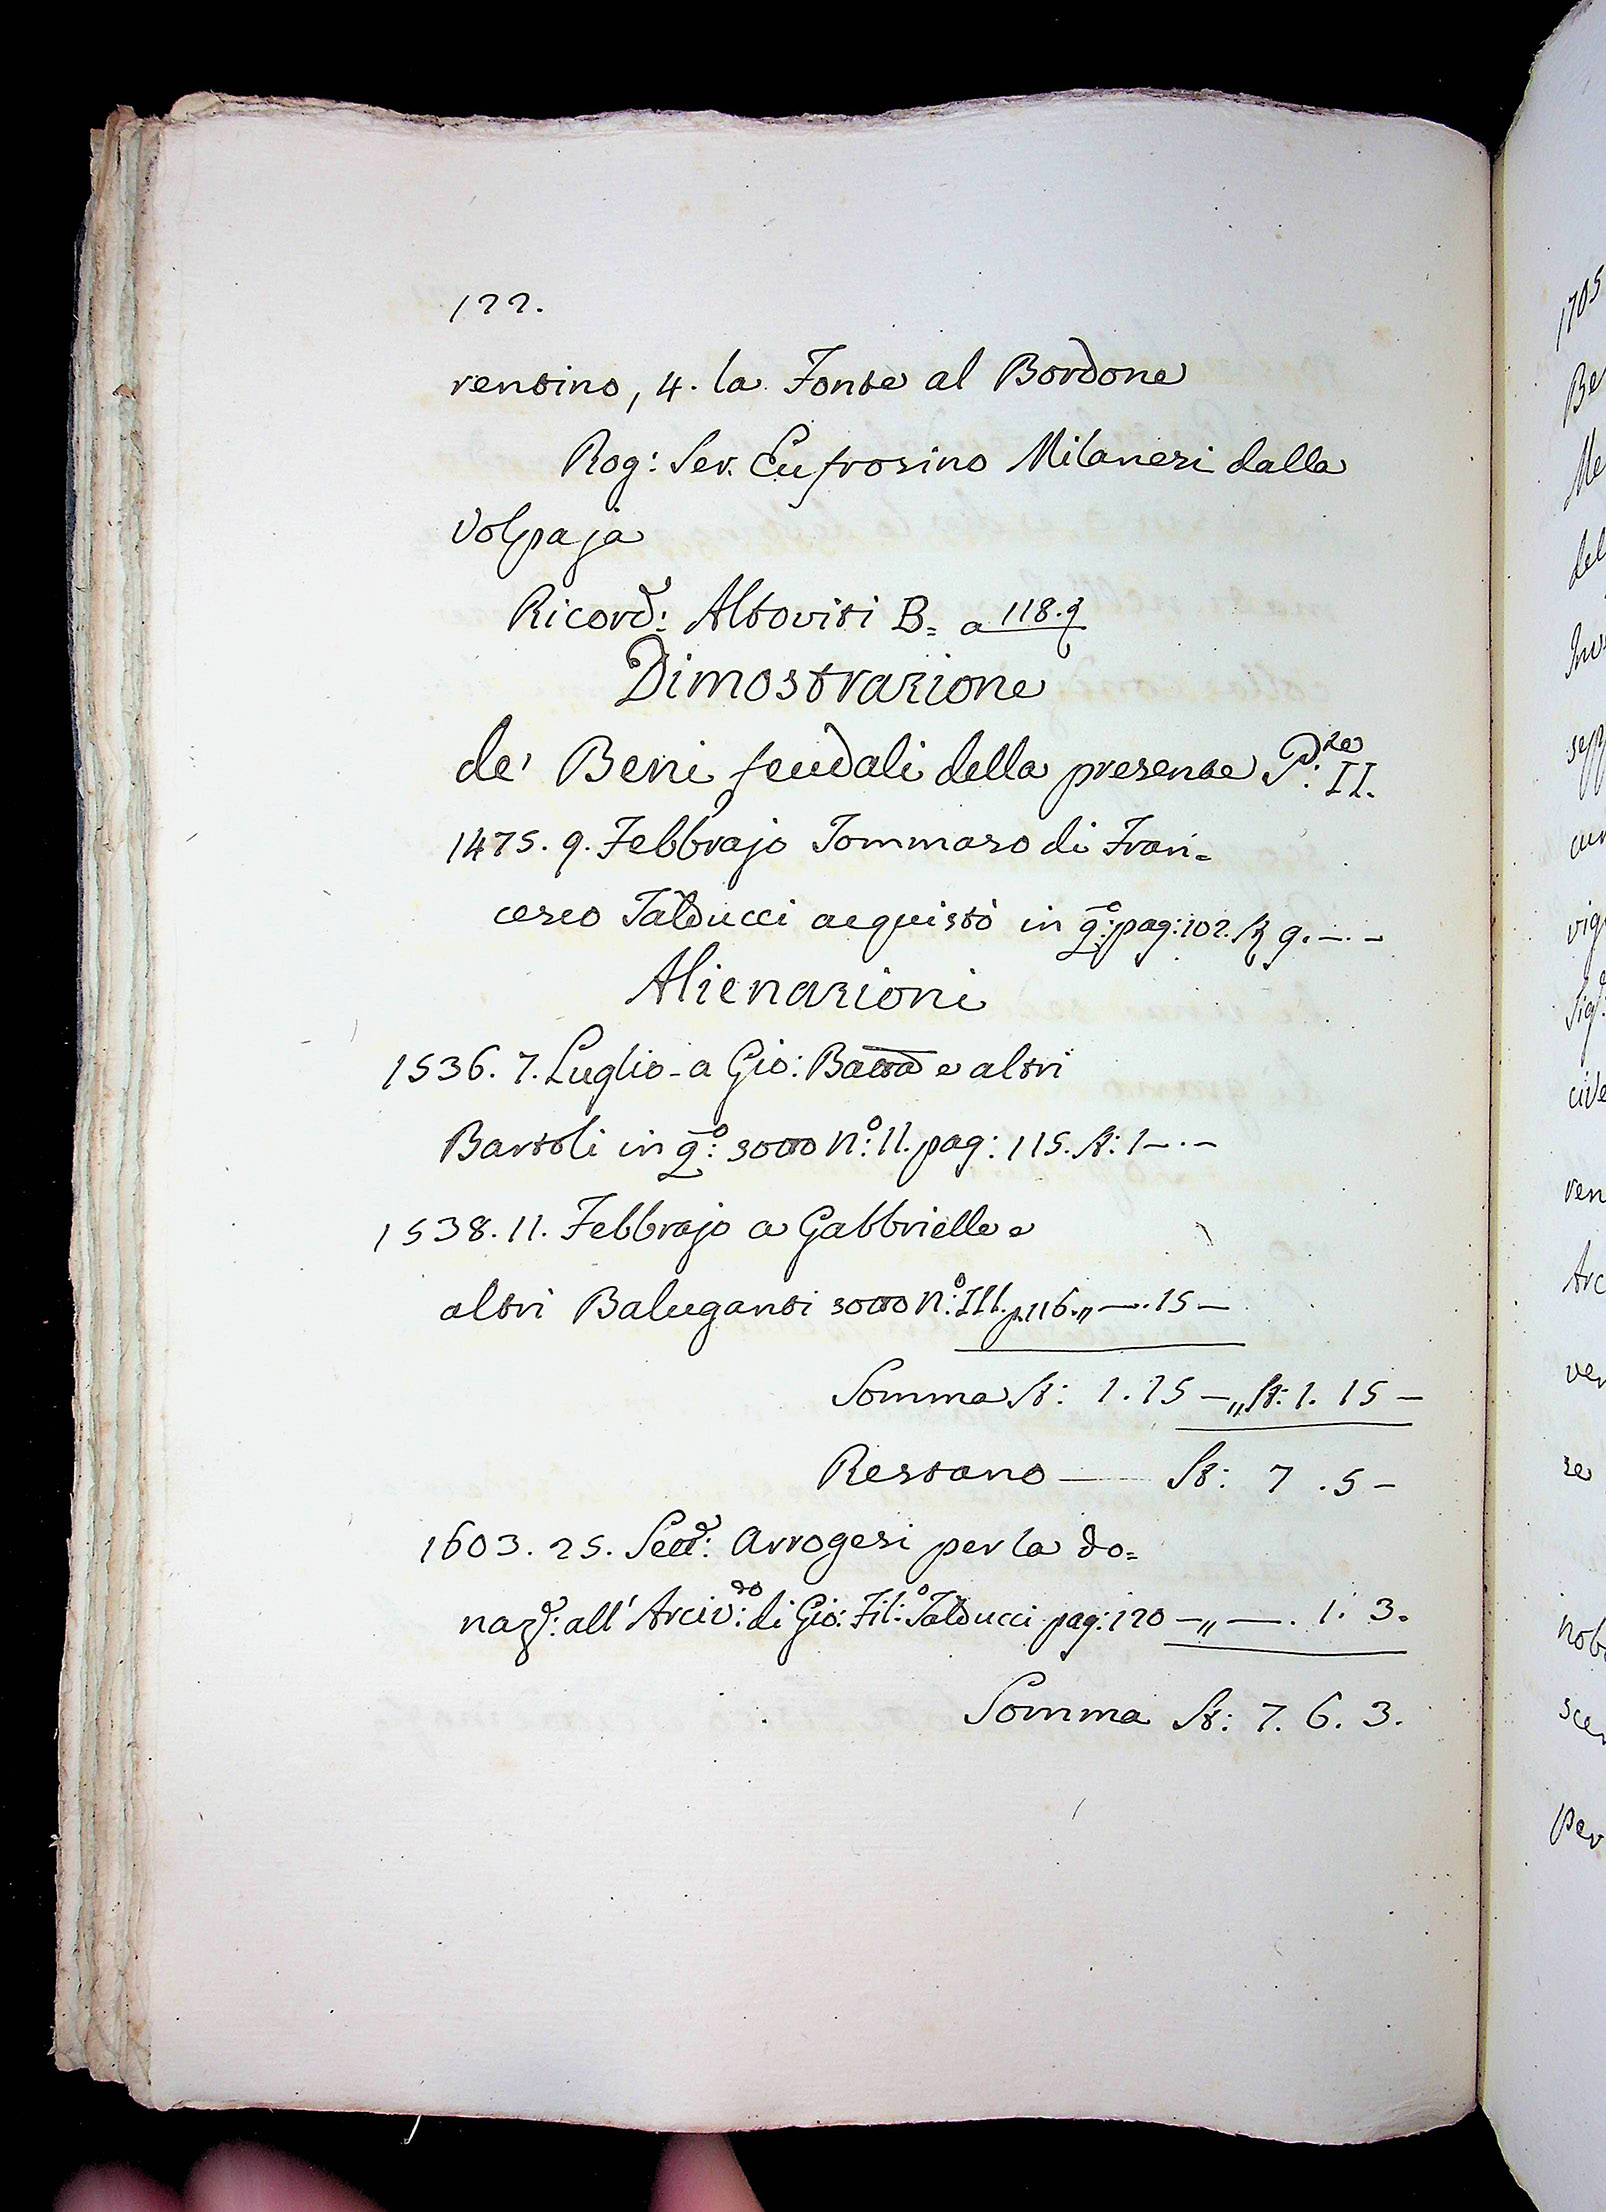 122.
rentino, 4. la Fonte al Bordone
Rog: Ser. Eufrosino Milanesi dalla
Volpaja
Ricord: Altoviti B= a 118.
Dimostrazione
de' Beni feudali della presente P:te II.
1475. 9. Febbrajo Tommaso di Fran=
cesco Talducci acquistò in q:o pag: 102. St 9. —. —
Alienazioni
1536. 7. Luglio - a Gio: Batta e altri
Bartoli in q:o sotto N:o II. pag: 115. St: 1 —. —
1538. 11. Febbrajo a Gabbrielle e
altri Baluganti sotto N:o III. p. 116. „ —. 15 —
Somma St: 1. 15 — „ St: 1. 15 —
Restano — St: 7 . 5 —
1603. 25. Sett: Arrogesi per la do=
naz: all' Arciv:do di Gio: Fil:o Talducci pag: 120 — „ —. 1. 3.
Somma St: 7. 6. 3.
1705
Be
Me
del
seff
cur
vig
cive
ren
Arc
ver
se
nob
scer
per